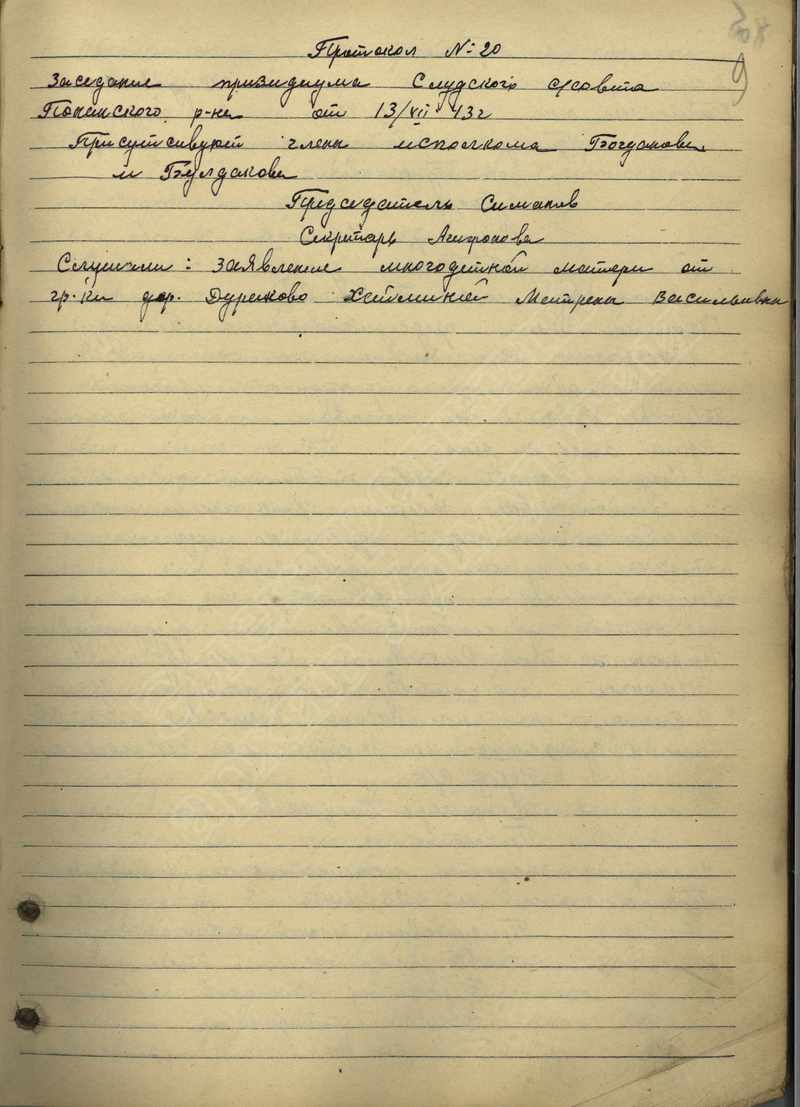 Протокол № 20
Заседание призидиума Слудского с/совета
р-на от 13/VII 43 г
Присутсивуют члены исполкома Богданова
и Булдакова
Председатель Симаков
Секретарь Агафонова
Слушали: Заявление многодетной матери от
гр-ки дер. Дураково Матрены Васильевны
9